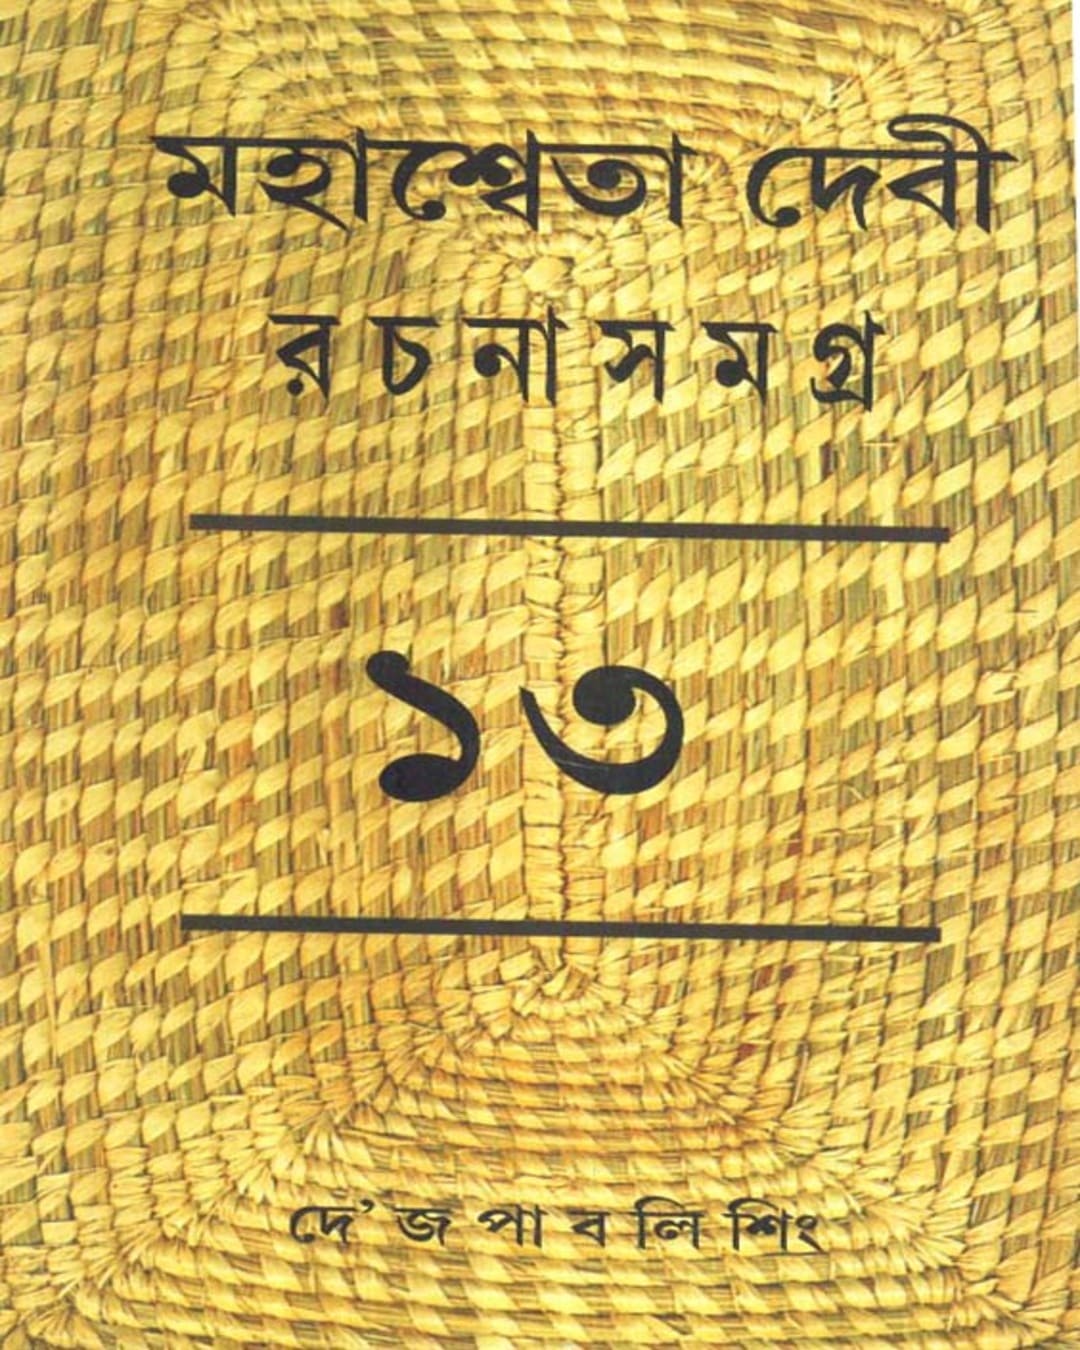 মহাশ্বেতা দেবী
রচনাসমগ্র
১৩
দে'জ পাবলিশিং